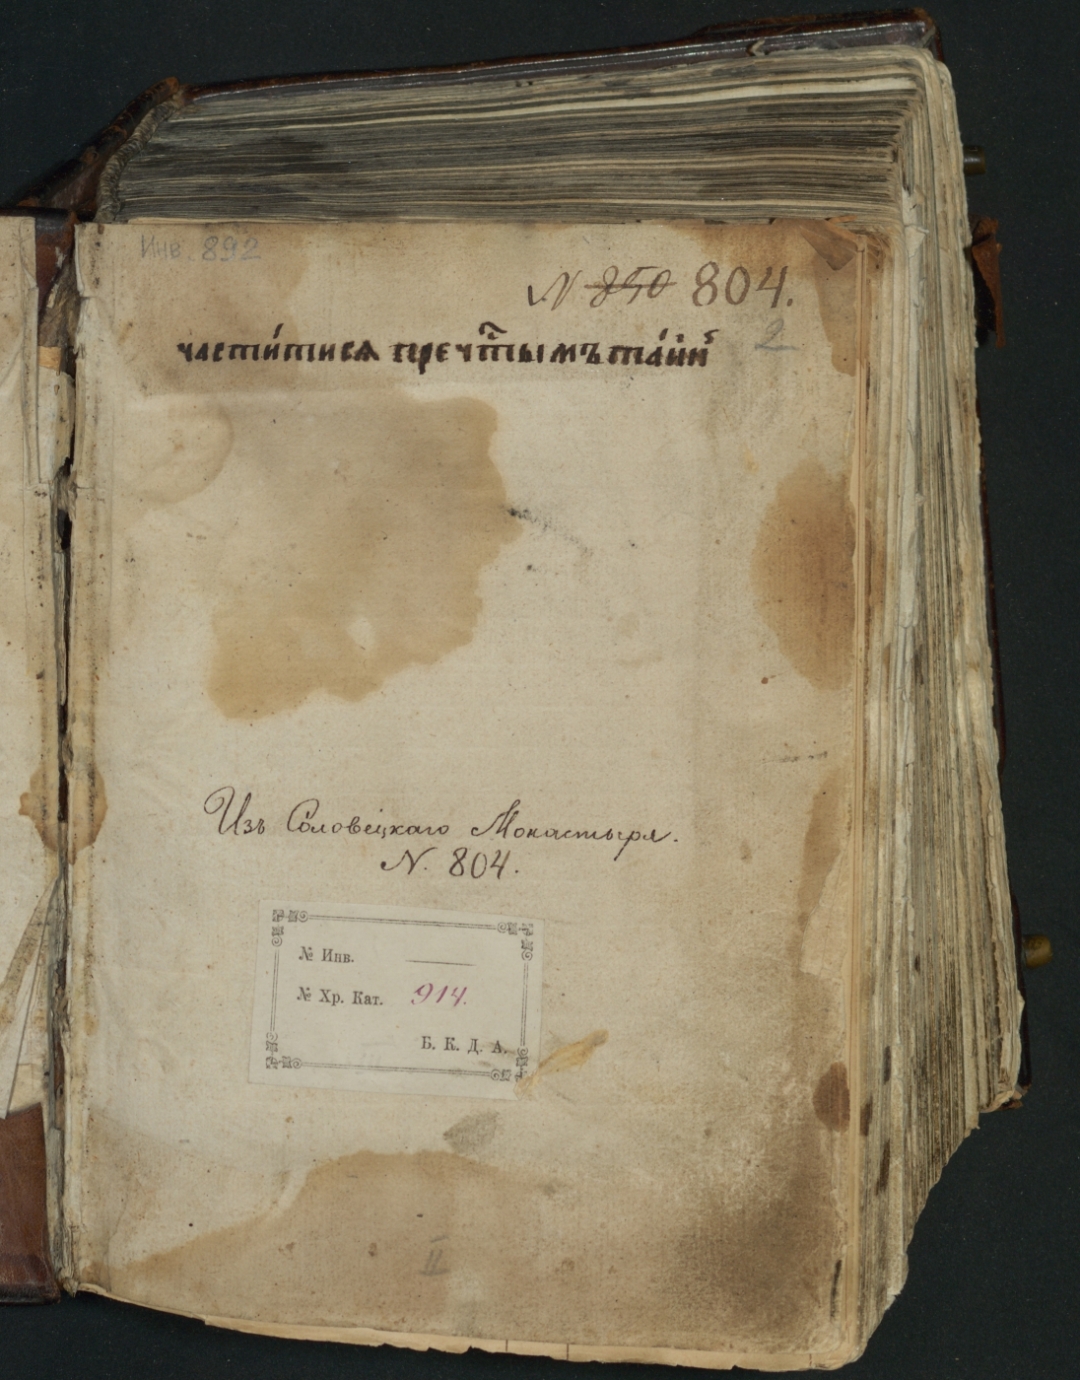 Инв. 892
N 850 804.
2
частитися пречⷭ҇тымъ таинⷨ
Изъ Соловецкаго Монастыря.
N. 804.
№ Инв. ———
№ Хр. Кат. 914.
Б. К. Д. А.
II